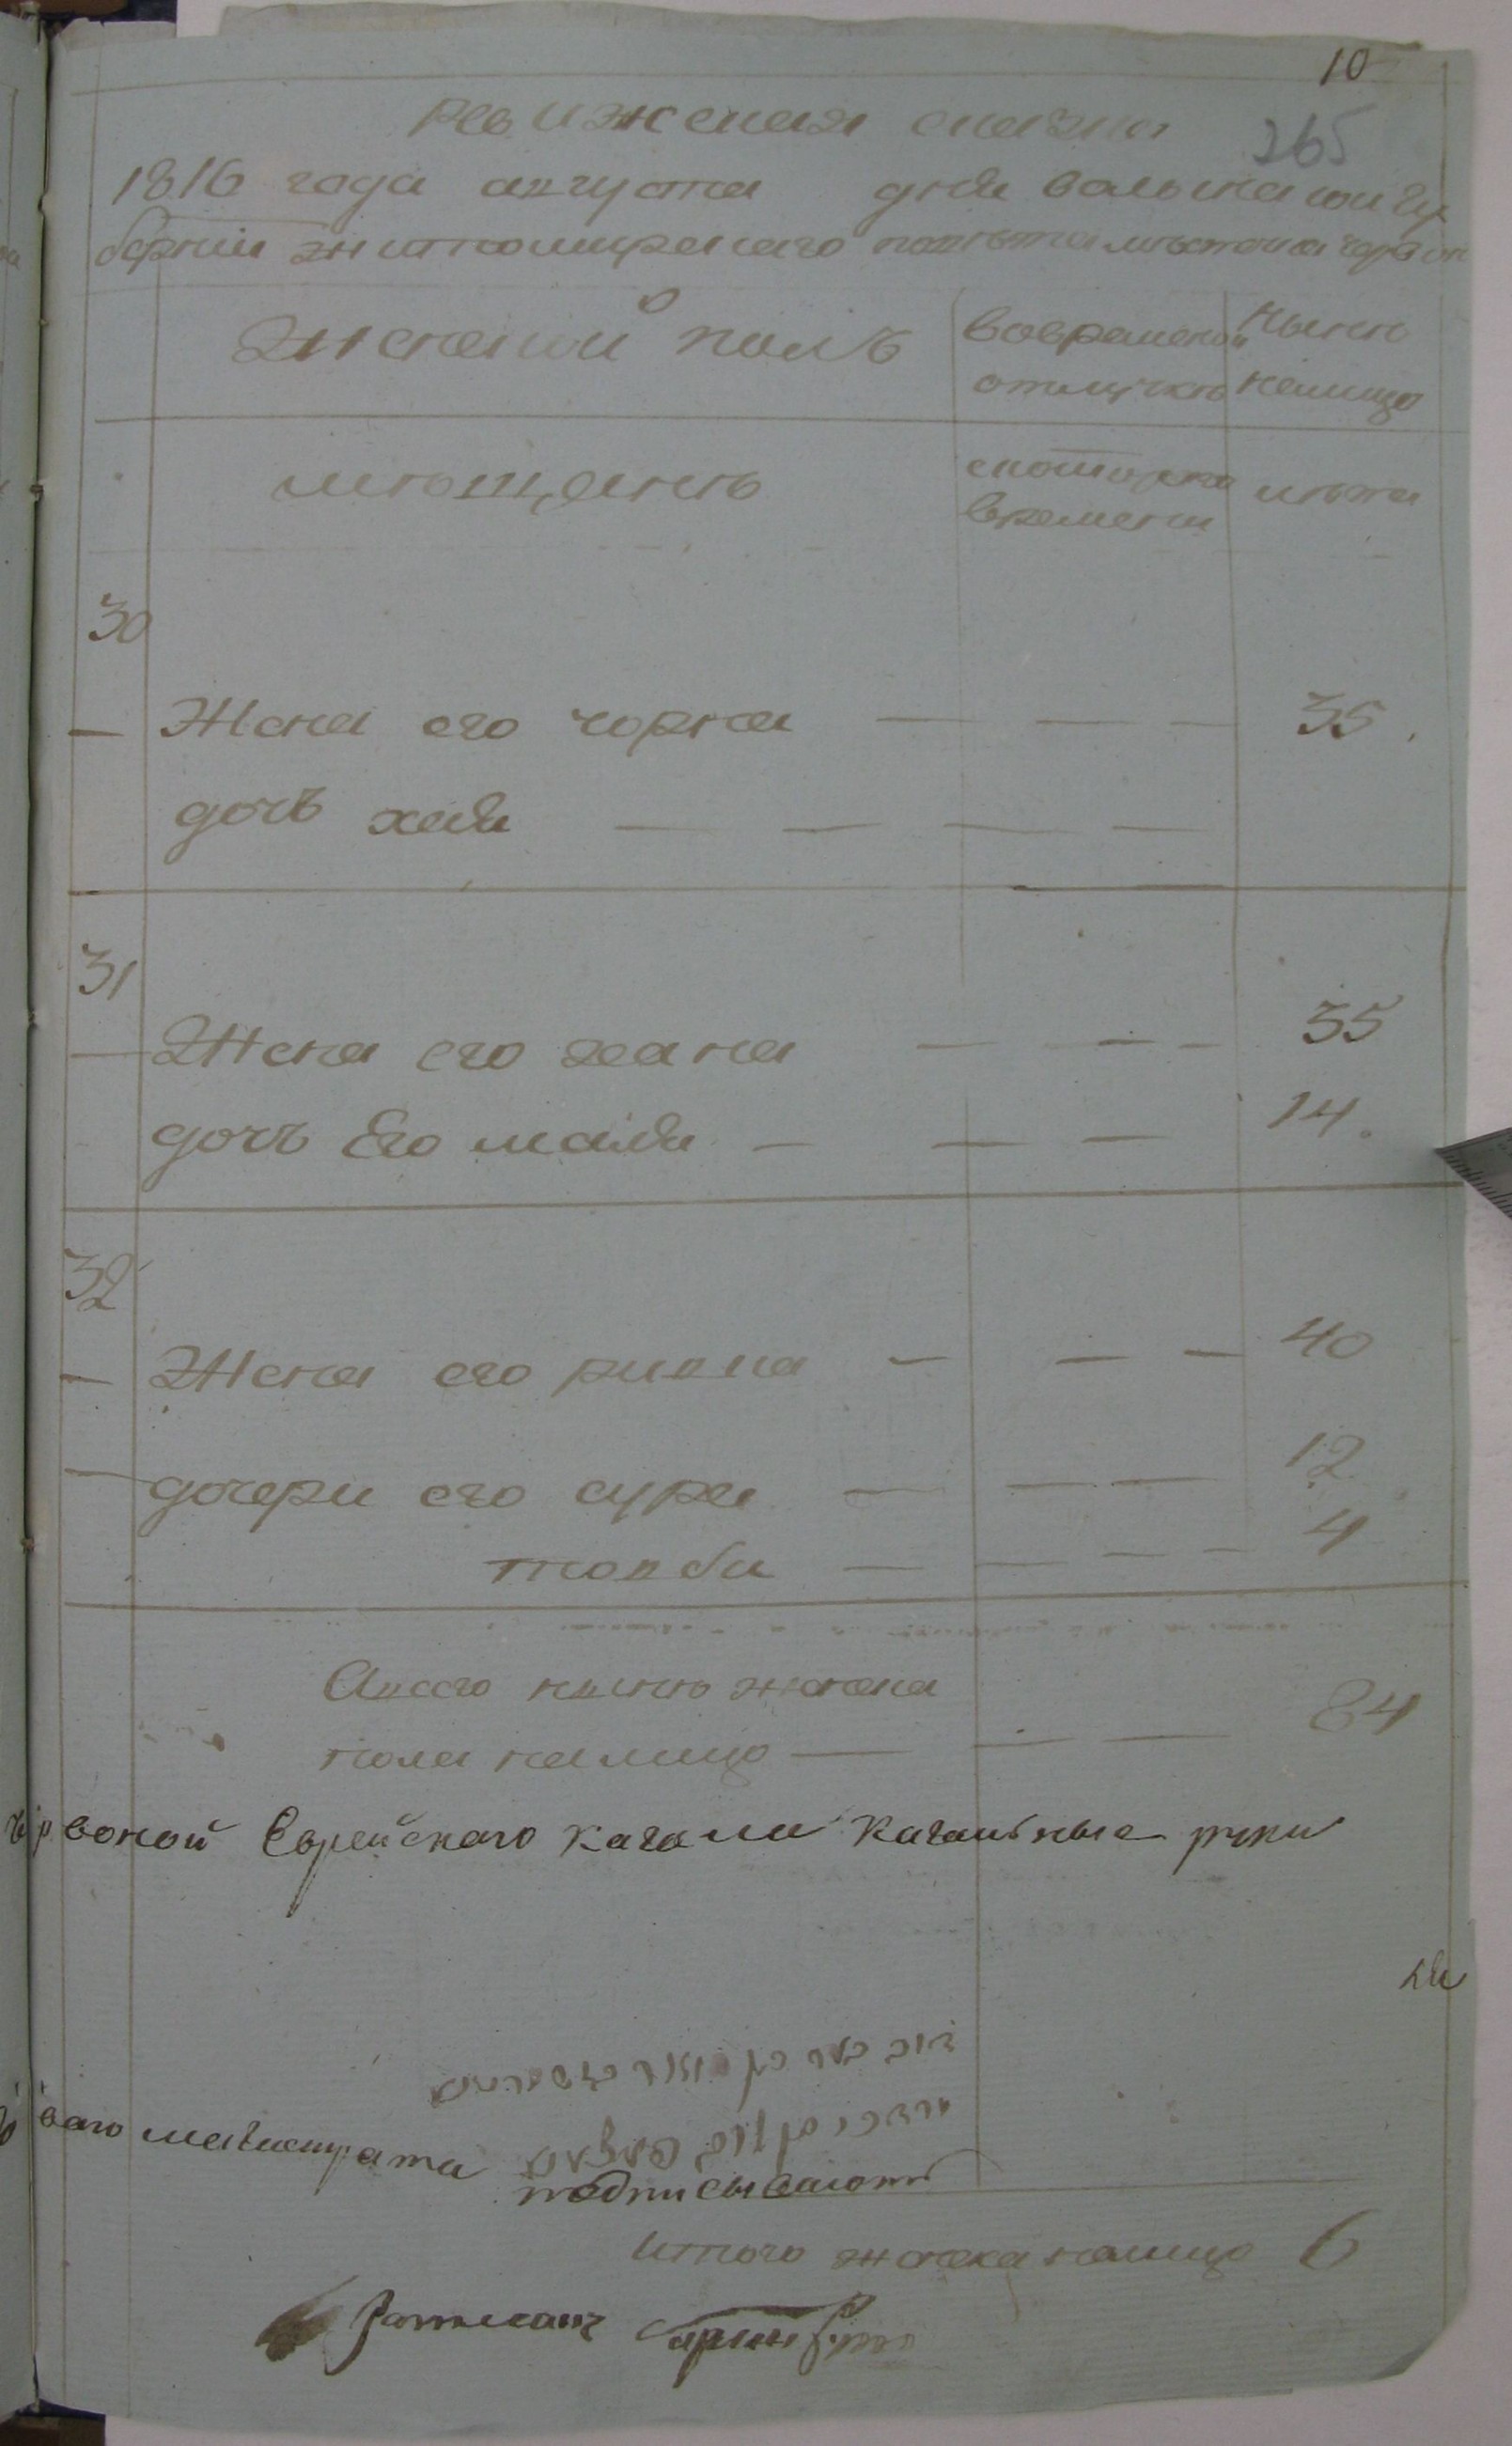 10
265
ревижская сказка
1816 года августа дня волынской гу
берніи житомирскаго повѣта мѣстечка черъвон
Женской полъ
Вовременой
отлучкѣ
Нынѣ
налицо
мѣщанѣ
скоторого
времени
лѣта
30
— Жена его чорна — — — 35.
дочъ хая — — — —
31
— Жена его хана — — — 35
дочъ Его малка — — — 14.
32
— Жена его ривка — — — 40
— дочери его сура — — — 12
товба — — — — 4
Авсего нынѣ женска
пола налицо — — — 84
червоной Еврейскаго кагала Кагальные
ваго магистрата
подписываютъ
Итого женска налицо 6
Ратманъ